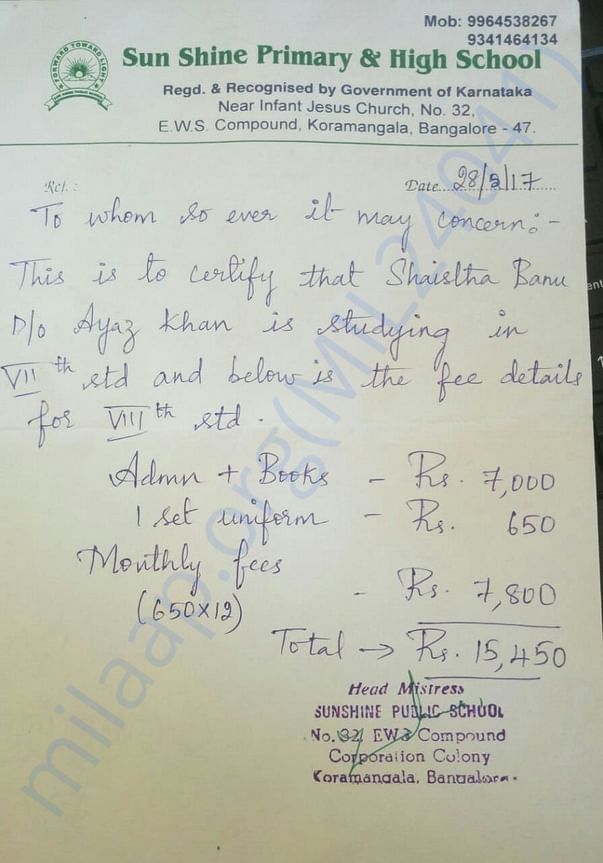 Mob: 9964538267
9341464134
FORWARD TOWARD LIGHT
Sun Shine Primary & High School
Regd. & Recognised by Government of Karnataka
Near Infant Jesus Church, No. 32,
E.W.S. Compound, Koramangala, Bangalore - 47.
Ref. :
Date...28/2/17......
To whom so ever it may concern:-
This is to certify that Shaistha Banu
D/o Ayaz Khan is studying in
VII th std and below is the fee details
for VIII th std.
Admn + Books - Rs. 7,000
1 set uniform - Rs. 650
Monthly fees
(650x12) - Rs. 7,800
Total → Rs. 15,450
Head Mistress
SUNSHINE PUBLIC SCHOOL
No. 32, EWS Compound
Corporation Colony
Koramangala, Bangalore.
milaap.org(MIL24041)